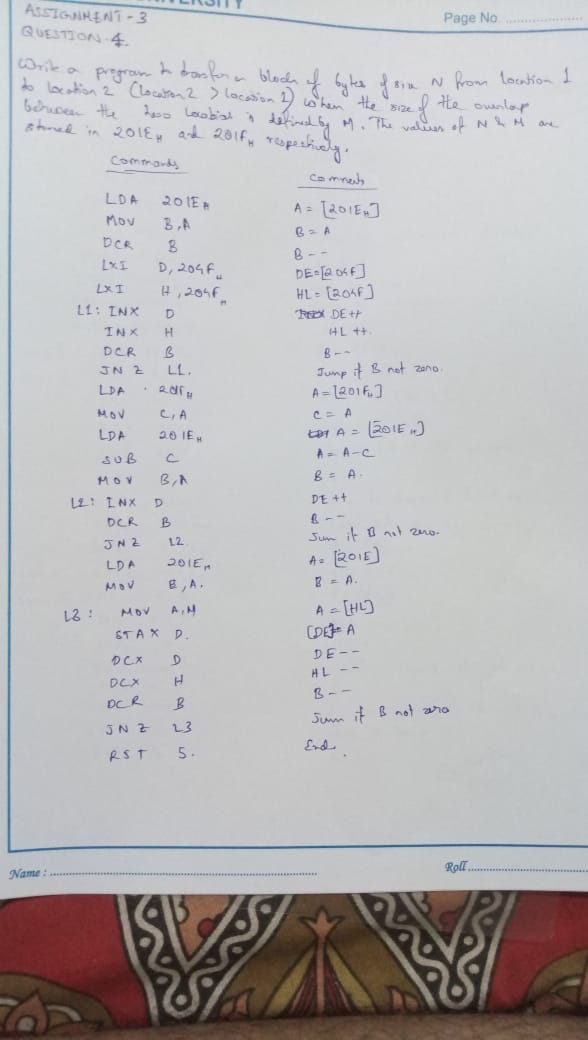 ERSITY
ASSIGNMENT - 3
Page No. ...................
QUESTION - 4.
Write a program to transfer a block of bytes of size N from location 1
to location 2 (location 2 > location 1) when the size of the overlap
between the two is defined by M. The values of N & M are
stored in 201EH and 201FH respectively.
Commands Comments
LDA 201EH A = [201EH]
MOV B,A B = A
DCR B B--
LXI D, 204FH DE=[204F]
LXI H, 204FH HL = [204F]
L1: INX D DE++
INX H HL ++.
DCR B B--
JNZ L1. Jump if B not zero.
LDA 201FH A = [201FH]
MOV C,A C = A
LDA 201EH A = [201EH]
SUB C A = A-C
MOV B,A B = A.
L2: INX D DE ++
DCR B B--
JNZ L2. Jum if B not zero.
LDA 201EH A = [201E]
MOV B,A. B = A.
L3: MOV A,M A = [HL]
STAX D. [DE]= A
DCX D DE--
DCX H HL --
DCR B B--
JNZ L3 Jum if B not zero
RST 5. End.
Name : ............................................................
Roll ..............................